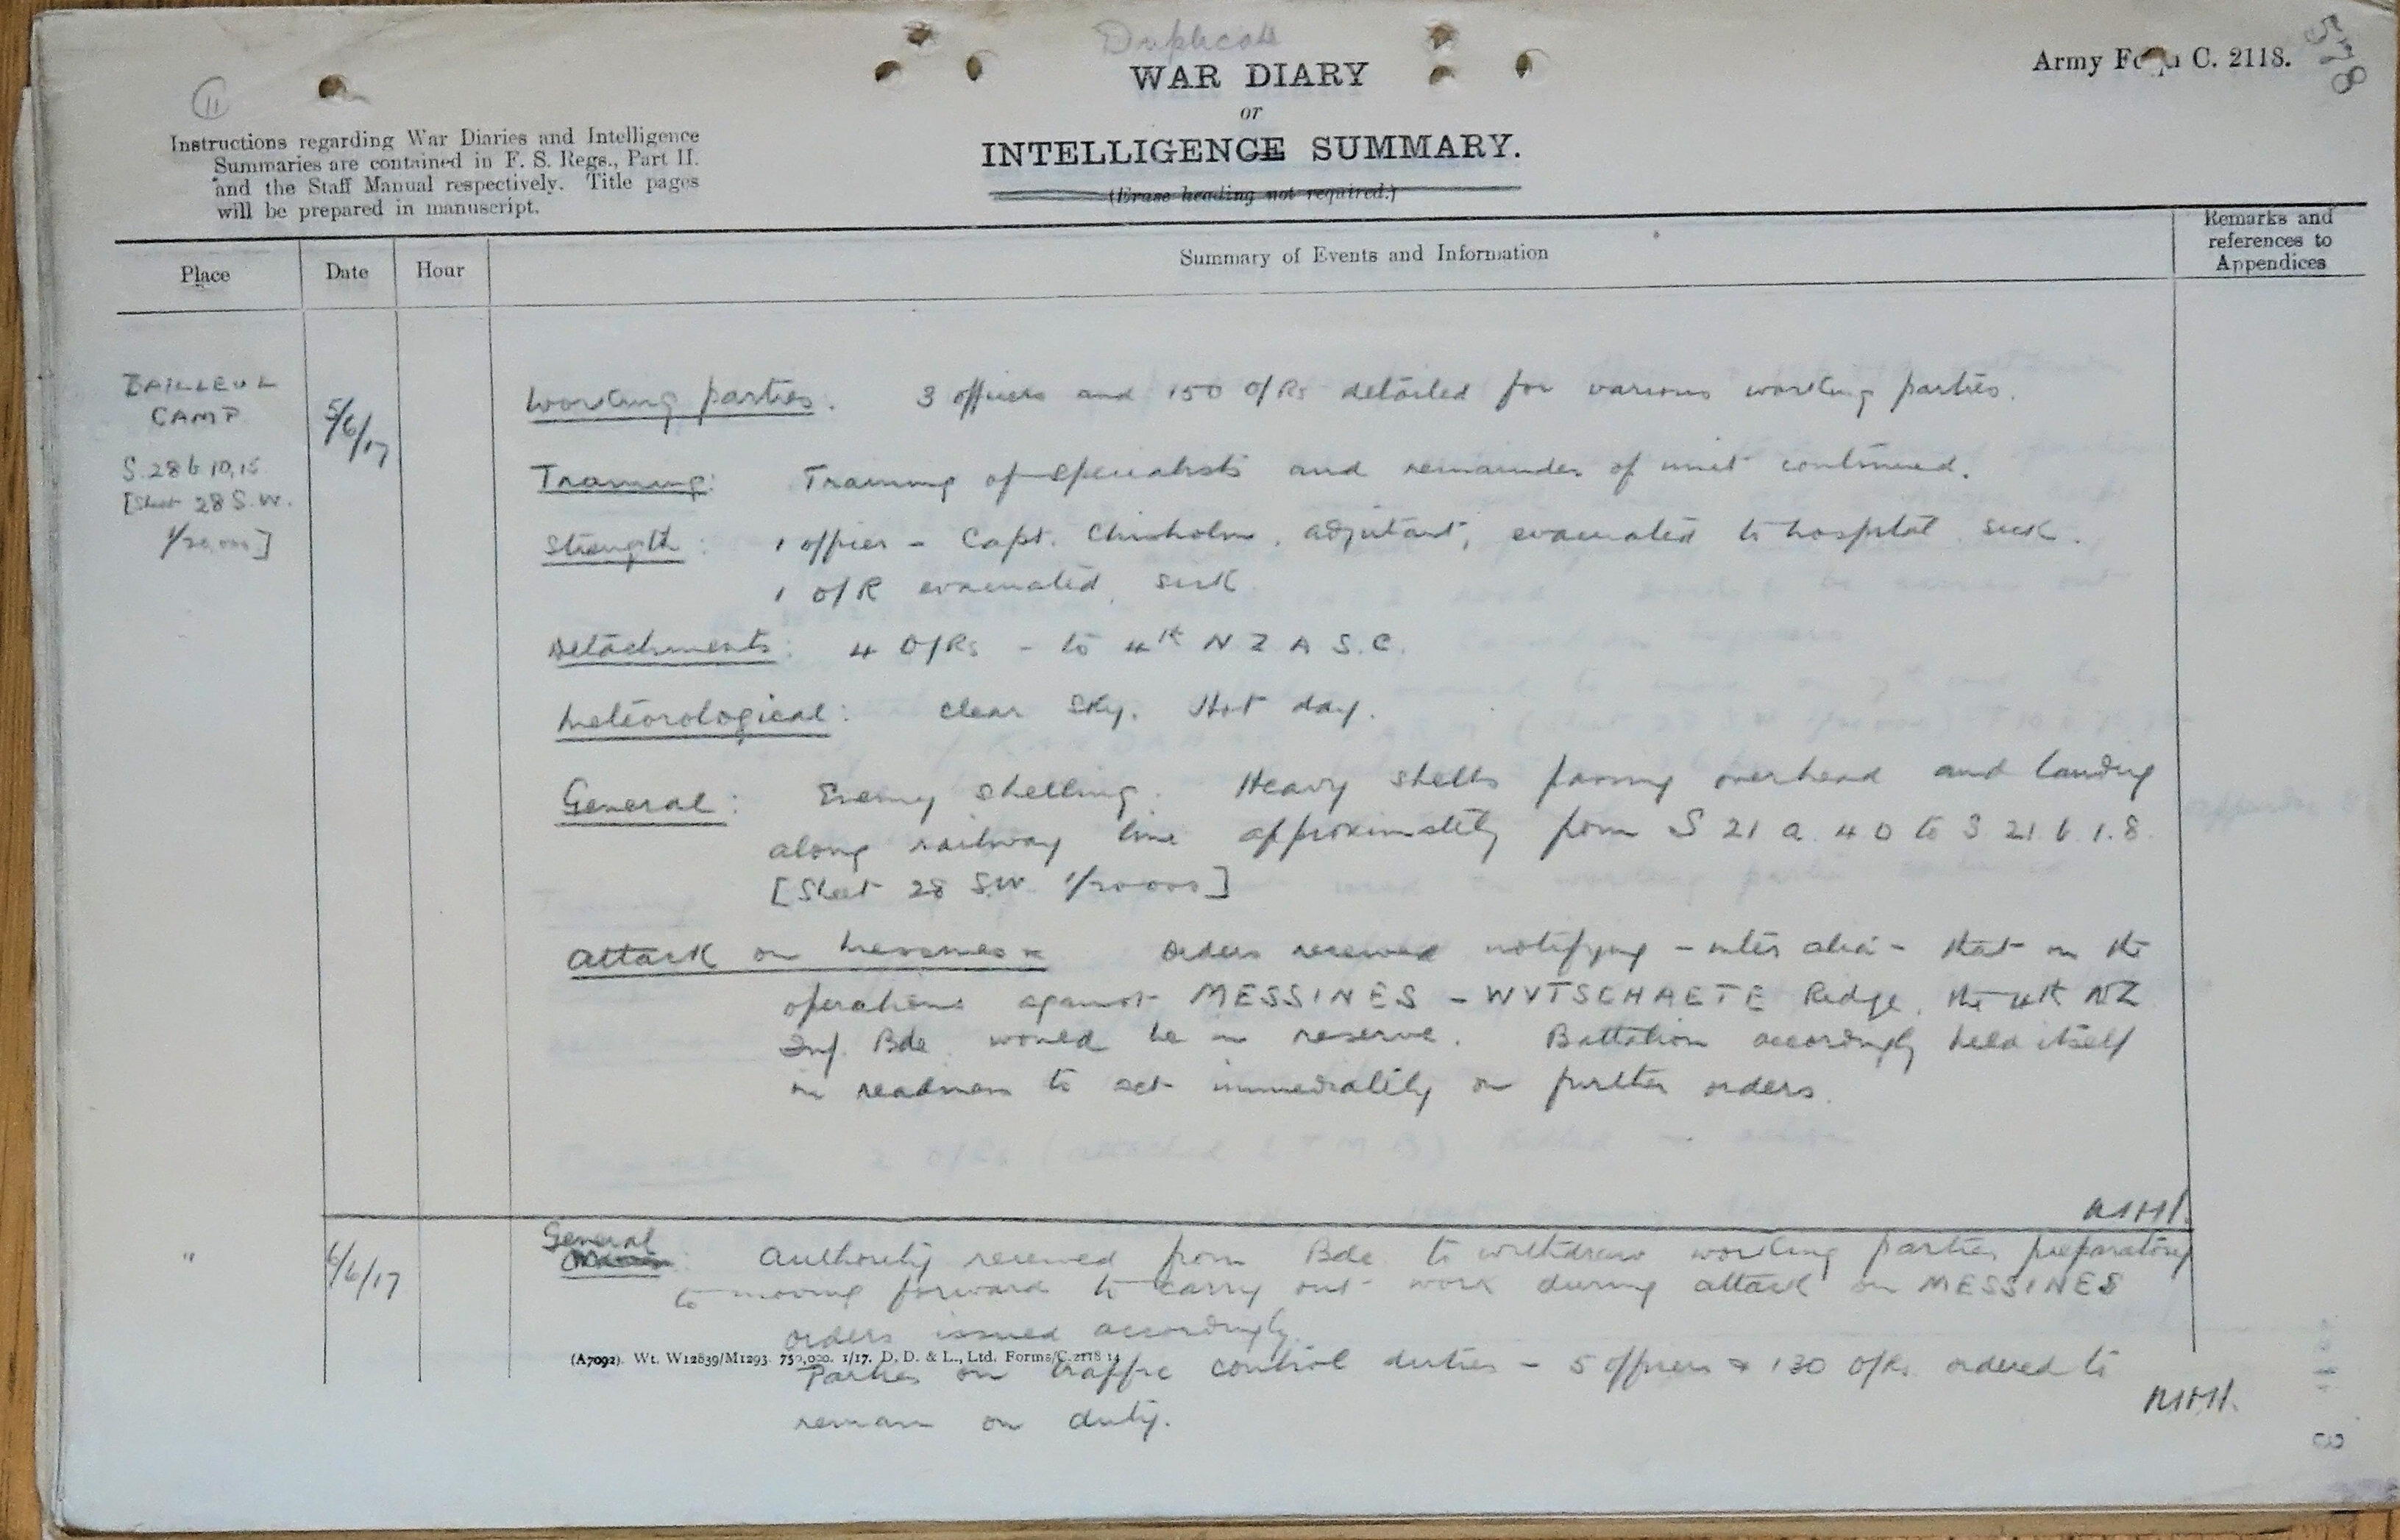 Duplicate
578
11
Army Form C. 2118.
WAR DIARY
or
INTELLIGENCE SUMMARY.
(Erase heading not required.)
Instructions regarding War Diaries and Intelligence
Summaries are contained in F. S. Regs., Part II.
and the Staff Manual respectively. Title pages
will be prepared in manuscript.
Place
Date
Hour
Summary of Events and Information
Remarks and
references to
Appendices
BAILLEUL
CAMP
S. 28 b 10,15
[Sheet 28 S.W.
1/20,000]
5/6/17
Working parties. 3 officers and 150 O/Rs detailed for various working parties.
Training: Training of specialists and remainder of unit continued.
Strength: 1 officer - Capt. Chisholm, adjutant, evacuated to hospital sick.
1 O/R evacuated, sick
Detachments: 4 O/Rs - to 4th N Z A S. C.
Meteorological: Clear sky. Hot day.
General: Enemy shelling. Heavy shells passing overhead and landing
along railway line approximately from S 21 a 4 0 to S 21. b. 1. 8.
[Sheet 28 S.W. 1/20000]
Attack on Messines Orders received notifying - inter alia - that in the
operations against MESSINES - WYTSCHAETE Ridge, the 4th NZ
Inf. Bde would be in reserve. Battalion accordingly held itself
in readiness to act immediately on further orders.
"
6/6/17
General: Authority received from Bde to withdraw working parties preparatory
to moving forward to carry out work during attack on MESSINES
orders issued accordingly.
(A7092). Wt. W12839/M1293. 750,000. 1/17. D. D. & L., Ltd. Forms/C.2118 14
Parties on traffic control duties - 5 officers & 130 O/Rs. ordered to
remain on duty.